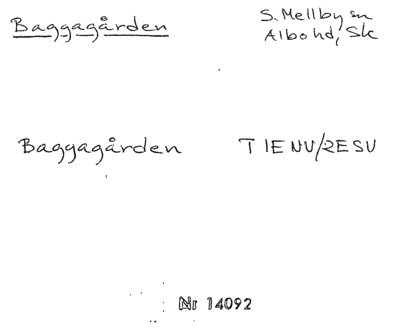 Baggagården
S. Mellby sn
Albo hd, Sk
Baggagården T 1E NV/2E SV
Nr 14092